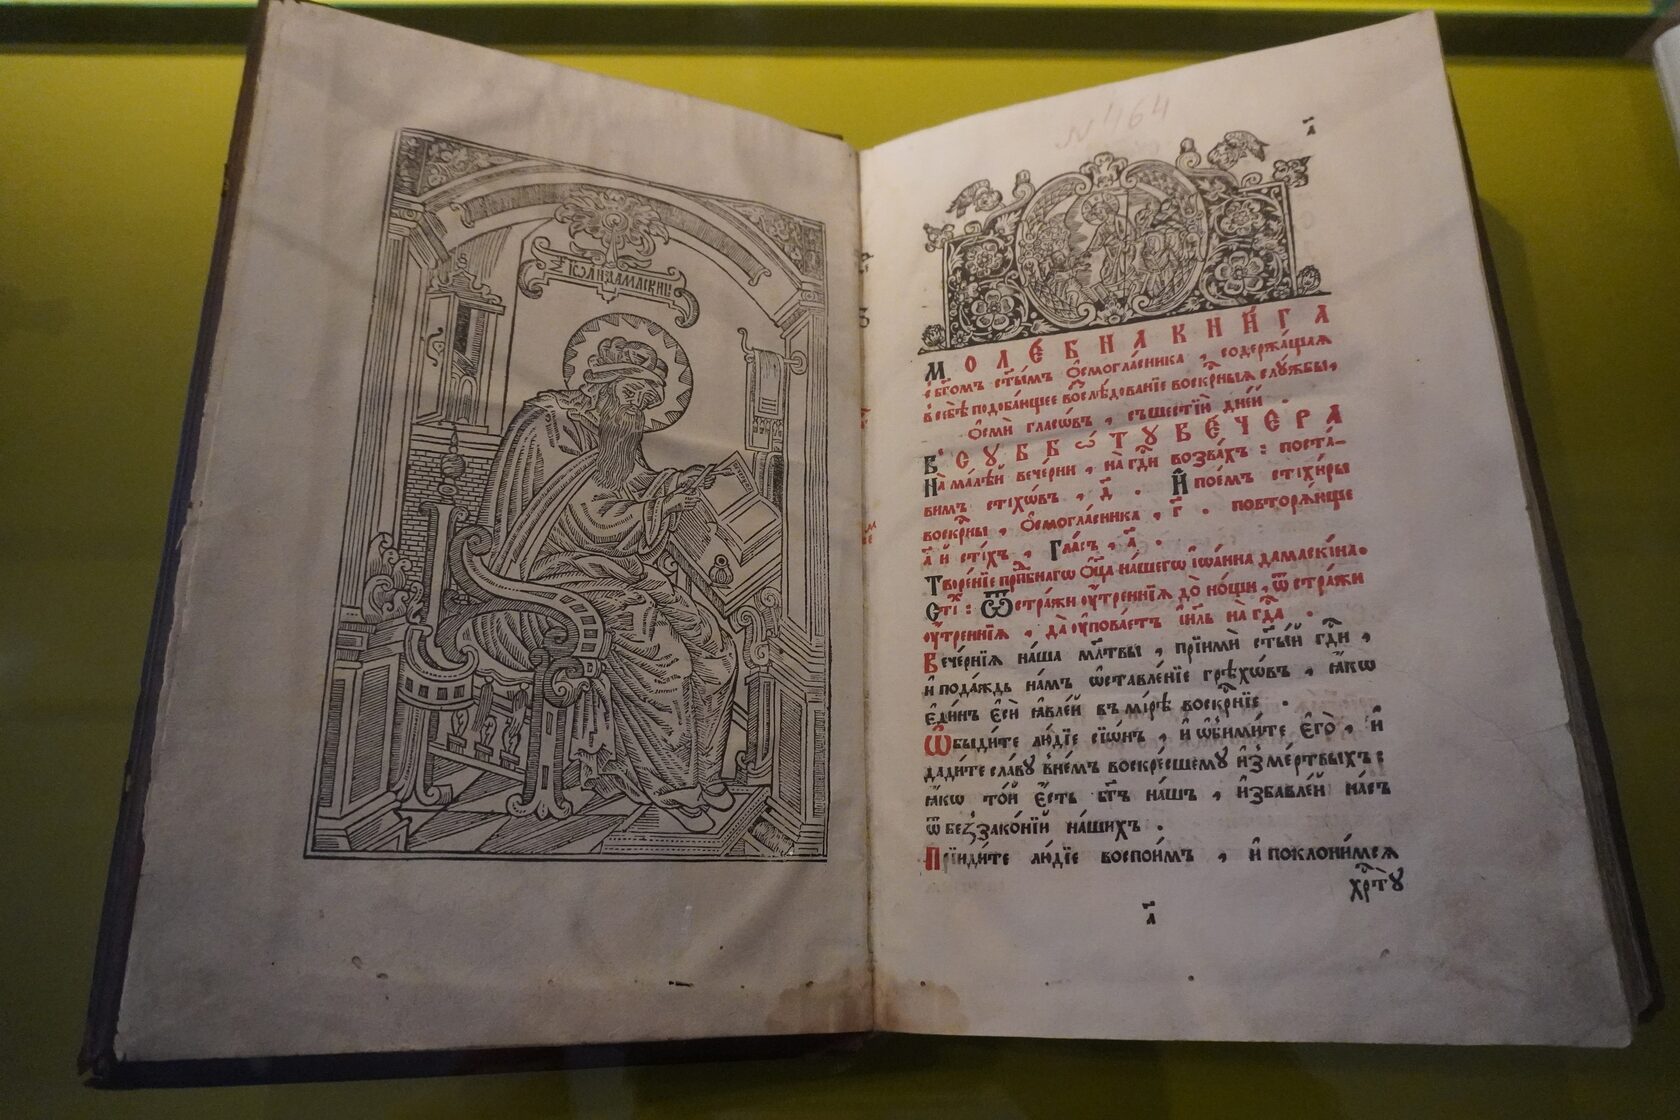 І҆ѠАН ДАМАСКИН
№ 464
а҃
МОЛЕ́БНА КНИ́ГА
с̾бг҃омъ ст҃ы́мъ Ѻ҆смогла́сника , содержа́щаѧ
в̾себѣ̀ подоба́ющее послѣ́дованїе воскр҃сныѧ слу́жбы ,
Ѻ҆смѝ гласѡ́въ , съшестїю̀ дне́й .
В̾ СУББѠ́ТУ ВЕ́ЧЕРА
На ма́лѣй вече́рни , на̀ гдⷭ҇и возва́хъ : поста́-
вимъ стїхѡ́въ , д҃ . И҆ пое́мъ стїхи́ры
воскр҃сны , Ѻ҆смогла́сника , г҃ . повторѧ́юще
а҃ и҆ сті́хъ , Гла́съ , а҃ .
Творе́нїе прпⷣбнагѡ Ѻ҆ц҃а̀ на́шегѡ і҆ѡа́нна дамаски́на .
Сті́ : Ѿ стра́жи ᲂу҆́треннїѧ до̀ но́щи , ѿ стра́жи
ᲂу҆́треннїѧ , да̀ ᲂу҆пова́етъ і҆и҃ль на̀ гдⷭ҇а .
Вече́рнїѧ на́ша мл҃твы , прїимѝ ст҃ы́й гдⷭ҇и ,
и҆ пода́ждь на́мъ ѡ҆ставле́нїе грѣхѡ́въ , ꙗ҆́кѡ
є҆ди́нъ є҆сѝ ꙗ҆вле́й въ мі́рѣ воскр҃нїе .
Ѡ҆быди́те лю́дїе сїѡ́нъ , и҆ ѡ҆бими́те є҆го̀ , и҆
дади́те сла́ву в̾не́мъ воскре́сшему и҆з̾ ме́ртвыхъ :
ꙗ҆́кѡ то́й є҆́сть бг҃ъ на́шъ , и҆збавле́й на́съ
ѿ беззако́нїй на́шихъ .
Прїиди́те лю́дїе воспои́мъ , и҆ поклони́мсѧ
хрⷭ҇ту̀
а҃